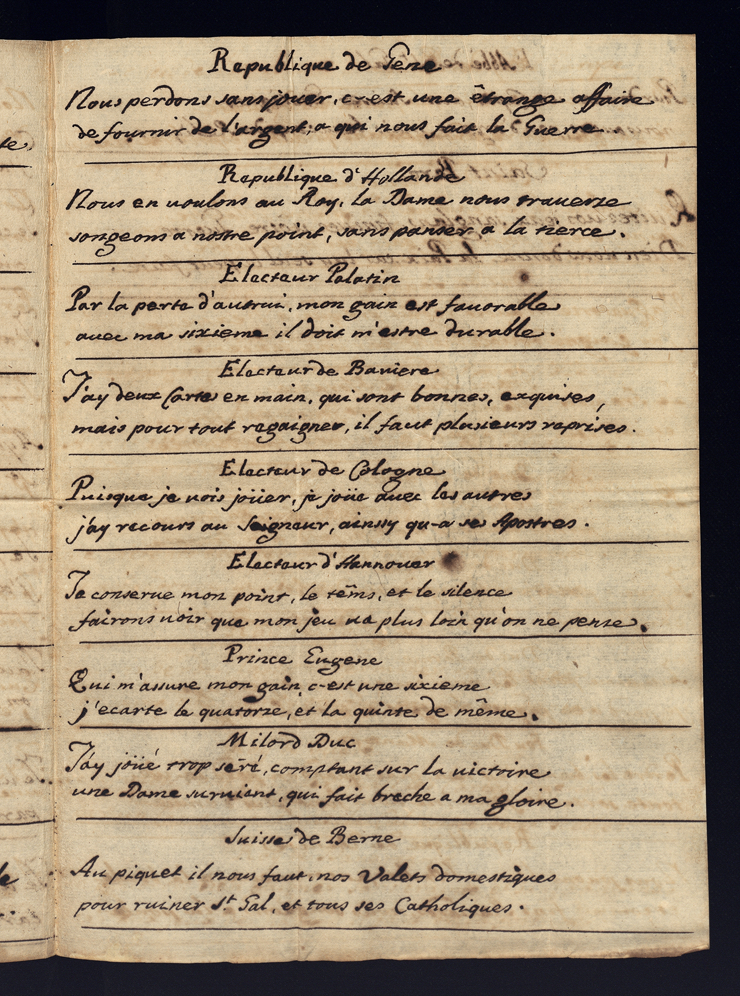 Republique de Gene
Nous perdons sans joüer, c'est une étrange affaire
de fournir de l'argent, a qui nous fait la Guerre.
Republique d'Hollande
Nous en voulons au Roy, la Dame nous traverse
songeons a nostre point, sans panser a la tierce.
Electeur Palatin
Par la perte d'autrui, mon gain est favorable
avec ma sixieme il doit m'estre durable.
Electeur de Baviere
J'ay deux Cartes en main, qui sont bonnes, exquises,
mais pour tout regaigner, il faut plusieurs reprises.
Electeur de Cologne
Puisque je vois joüer, je joüe avec les autres
j'ay recours au Seigneur, ainsy qu-a ses Apostres.
Electeur d'Hannover
Je conserve mon point, le tēms, et le silence
fairons voir que mon jeu va plus loin qu'on ne pense.
Prince Eugene
Qui m'assure mon gain, c-est une sixieme
j'ecarte le quatorze, et la quinte de même.
Milord Duc
J'ay joüé trop séré, comptant sur la victoire
une Dame survient, qui fait breche a ma gloire.
Suisse de Berne
Au piquet il nous faut, nos Valets domestiques
pour ruiner St. Gal, et tous ses Catholiques.